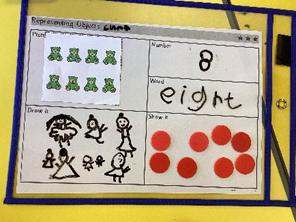 Representing Objects
Number
8
Word
eight
Draw it
Show it